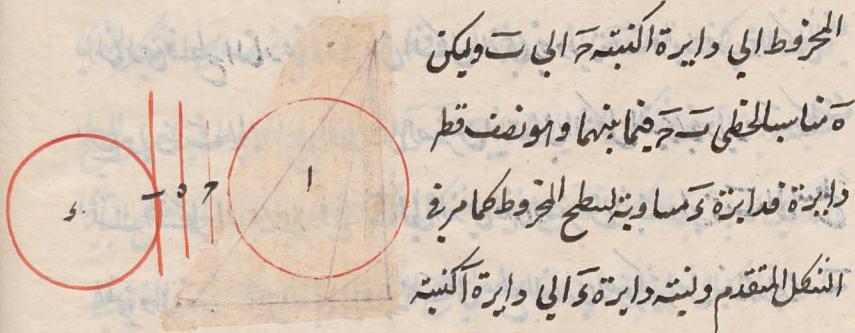 المخروط الي دايرة ا كنسبته حَ الي بَ وليكن
هَ مناسبا لخطي بَ حَ فيما بينهما وهو نصف قطر
دايرة فدايرة ءَ مساوية لسطح المخروط كما مر في
الشكل المتقدم ونسبته دايرة ءَ الي دايرة اَ كنسبته
ا
ح
ه
ب
ء